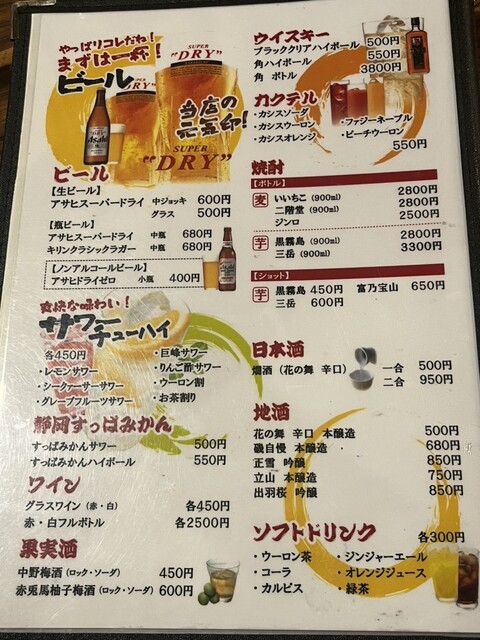 やっぱりコレだね!
まずは一杯!
ビール
SUPER
"DRY"
SUPER
"DRY"
Asahi
当店の
一元気印!
SUPER
"DRY"
ビール
【生ビール】
アサヒスーパードライ 中ジョッキ 600円
グラス 500円
【瓶ビール】
アサヒスーパードライ 中瓶 680円
キリンクラシックラガー 中瓶 680円
【ノンアルコールビール】
アサヒドライゼロ 小瓶 400円
爽快な味わい!
サワー
チューハイ
各450円
・レモンサワー
・シークァーサーサワー
・グレープフルーツサワー
・巨峰サワー
・りんご酢サワー
・ウーロン割
・お茶割り
静岡すっぱみかん
すっぱみかんサワー 500円
すっぱみかんハイボール 550円
ワイン
グラスワイン(赤・白) 各450円
赤・白フルボトル 各2500円
果実酒
中野梅酒(ロック・ソーダ) 450円
赤兎馬柚子梅酒(ロック・ソーダ) 600円
ウイスキー
ブラッククリアハイボール 500円
角ハイボール 550円
角 ボトル 3800円
カクテル
・カシスソーダ
・カシスウーロン
・カシスオレンジ
・ファジーネーブル
・ピーチウーロン
550円
焼酎
【ボトル】
麦 いいちこ(900ml) 2800円
二階堂(900ml) 2800円
ジンロ 2500円
芋 黒霧島(900ml) 2800円
三岳(900ml) 3300円
【ショット】
芋 黒霧島 450円 富乃宝山 650円
三岳 600円
日本酒
燗酒(花の舞 辛口) 一合 500円
二合 950円
地酒
花の舞 辛口 本醸造 500円
磯自慢 本醸造 680円
正雪 吟醸 850円
立山 本醸造 750円
出羽桜 吟醸 850円
ソフトドリンク 各300円
・ウーロン茶
・コーラ
・カルピス
・ジンジャーエール
・オレンジジュース
・緑茶